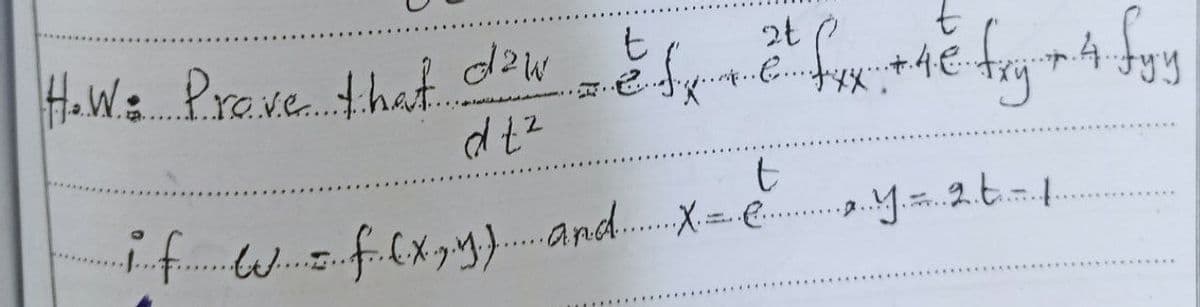 H.W: Prove that d²w/dt² = e^t fx + e^2t fxx + 4e^t fxy + 4 fyy
if w = f(x,y) and x = e^t , y = 2t - 1